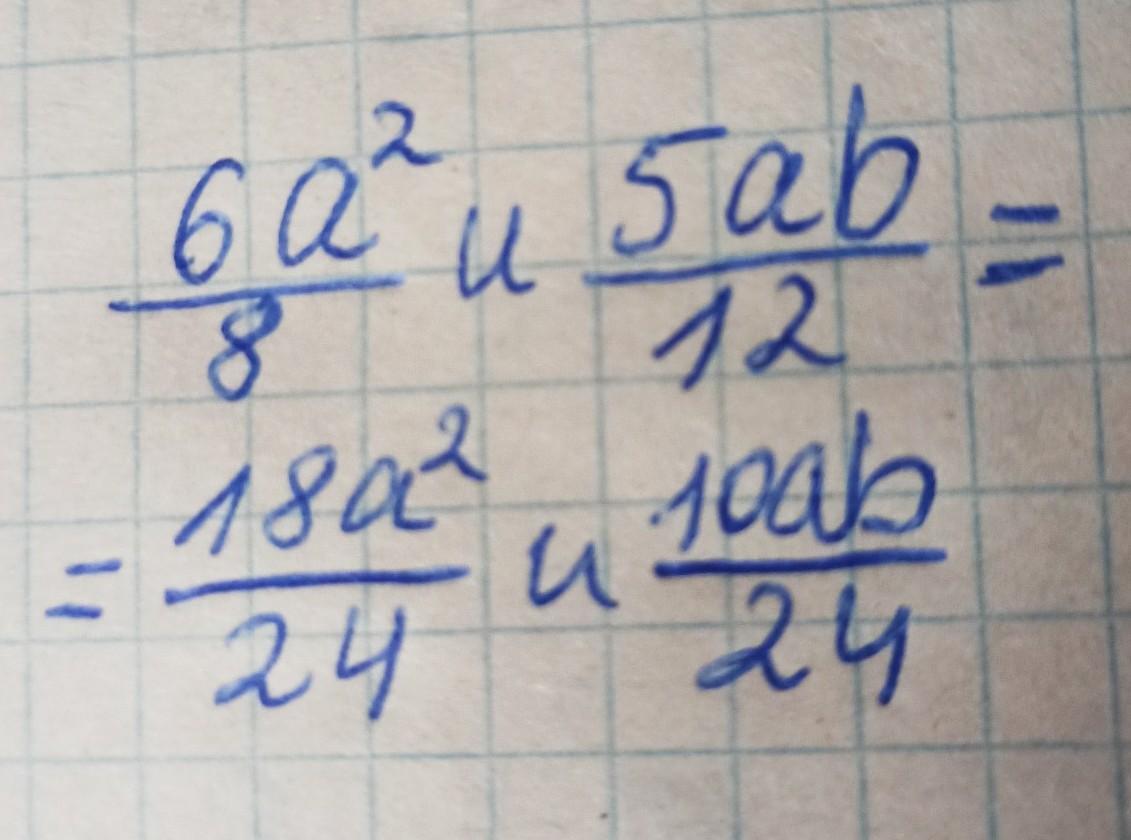 6a²/8 и 5ab/12 =
= 18a²/24 и 10ab/24